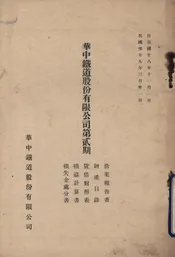 自民國廿九年十一月一日
至民國三十年三月卅一日
華中鐵道股份有限公司第貳期
營業報告書
財產目錄
貸借對照表
損益計算書
損失金處分書
華中鐵道股份有限公司